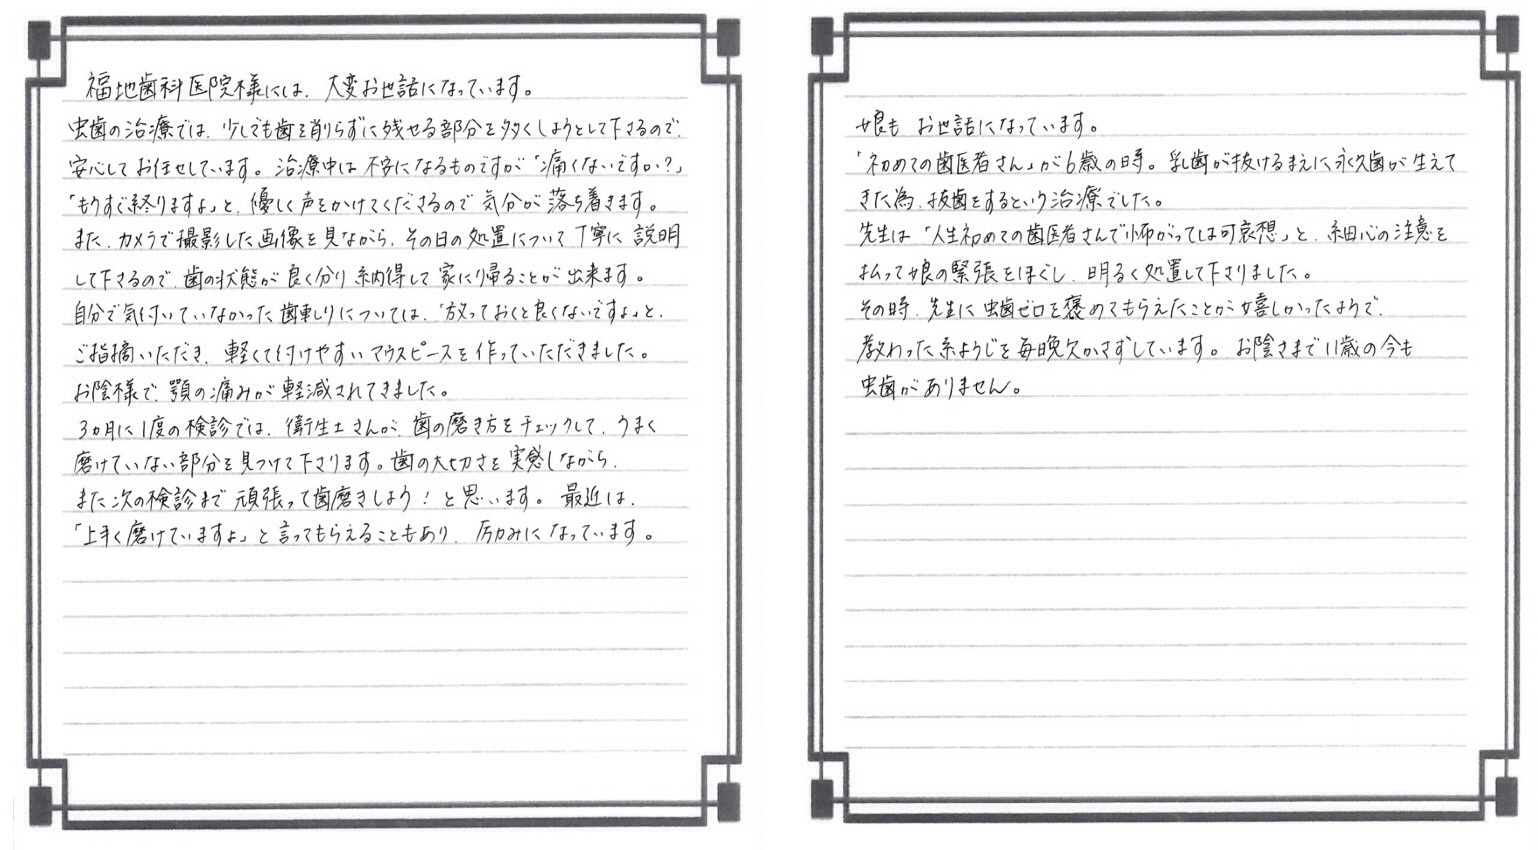 福地歯科医院様には、大変お世話になっています。
虫歯の治療では、少しでも歯を削らずに残せる部分を多くしようとして下さるので、
安心してお任せしています。治療中は不安になるものですが「痛くないですか?」
「もうすぐ終りますよ」と、優しく声をかけてくださるので気分が落ち着きます。
また、カメラで撮影した画像を見ながら、その日の処置について丁寧に説明
して下さるので、歯の状態が良く分り納得して家に帰ることが出来ます。
自分で気付いていなかった歯軋りについては、「放っておくと良くないですよ」と、
ご指摘いただき、軽くて付けやすいマウスピースを作っていただきました。
お陰様で、顎の痛みが軽減されてきました。
3ヵ月に1度の検診では、衛生士さんが、歯の磨き方をチェックして、うまく
磨けていない部分を見つけて下さります。歯の大切さを実感しながら、
また次の検診まで頑張って歯磨きしよう!と思います。最近は、
「上手く磨けていますよ」と言ってもらえることもあり、励みになっています。
娘もお世話になっています。
「初めての歯医者さん」が6歳の時。乳歯が抜けるまえに永久歯が生えて
きた為、抜歯をするという治療でした。
先生は「人生初めての歯医者さんで怖がっては可哀想」と、細心の注意を
払って娘の緊張をほぐし、明るく処置して下さりました。
その時、先生に虫歯ゼロを褒めてもらえたことが嬉しかったようで、
教わった糸ようじを毎晩欠かさずしています。お陰さまで11歳の今も
虫歯がありません。